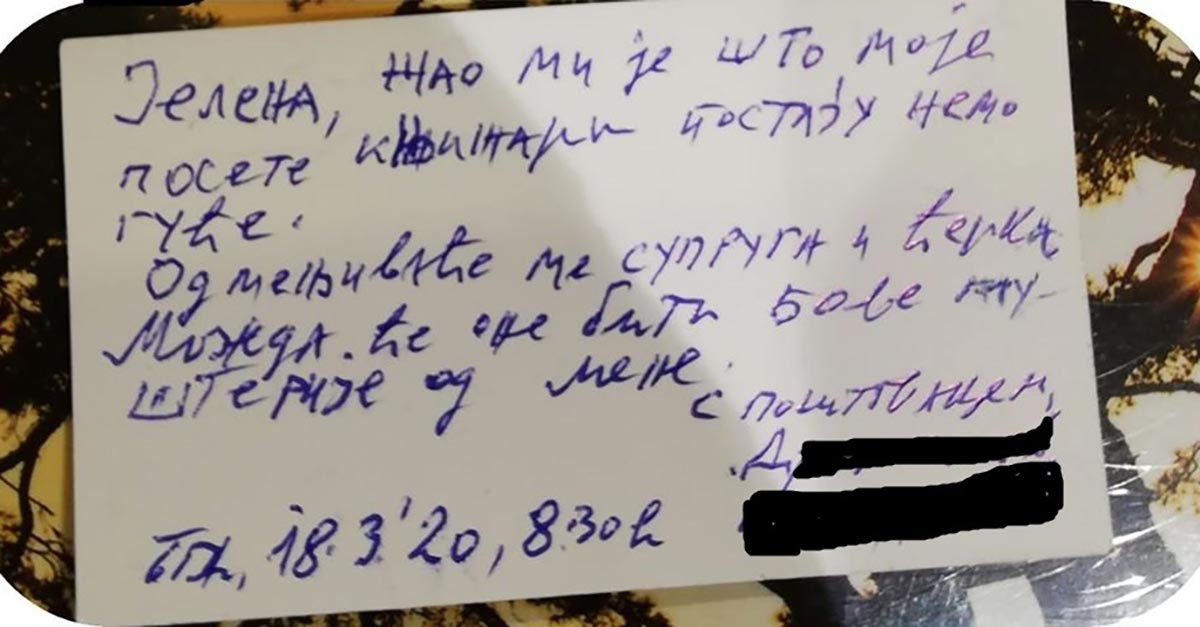 Јелена, жао ми је што моје
посете књижари постају немо
гуће.
Одмењиваће ме супруга и ћерка
Можда ће оне бити боље му-
штерије од мене.
с поштовањем,
18.3'20, 8.30h